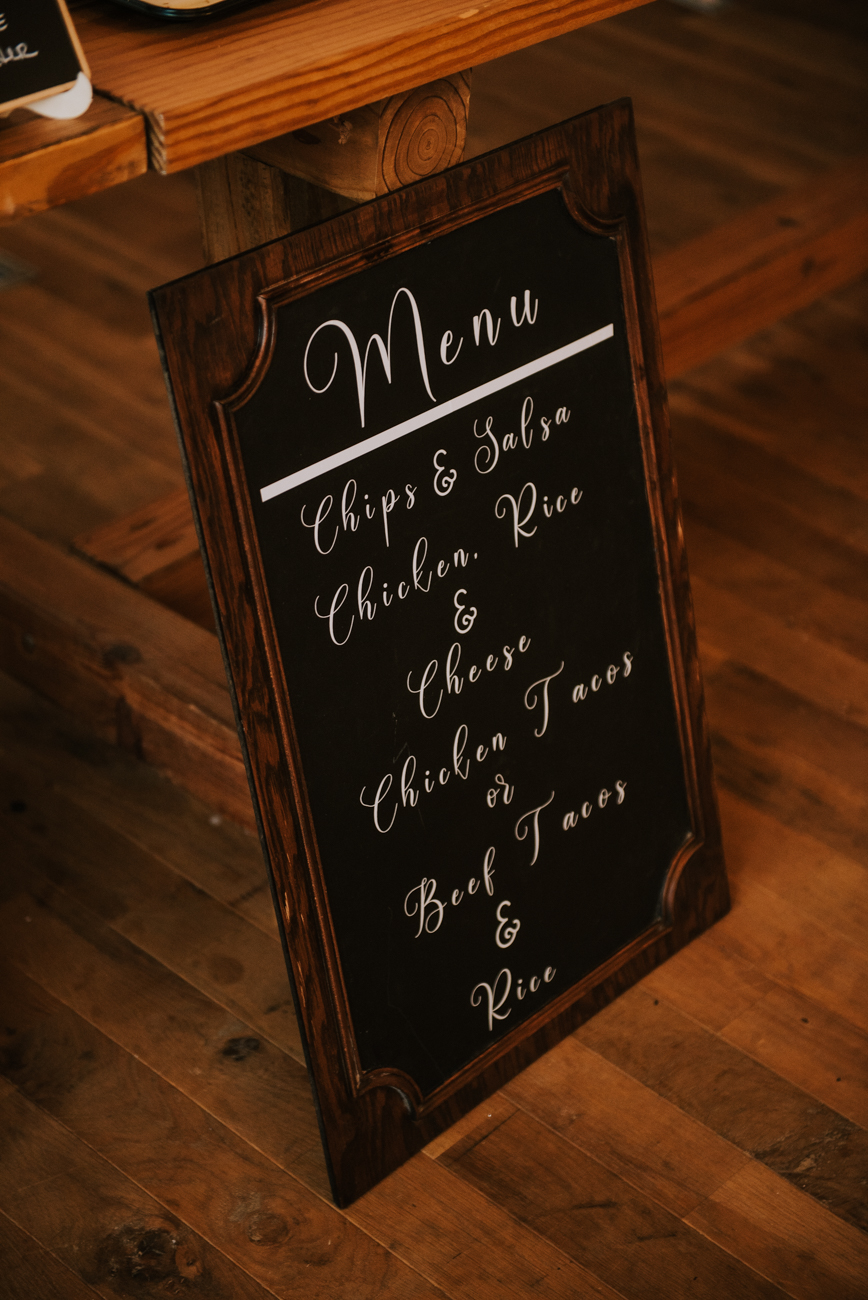 Menu
Chips & Salsa
Chicken. Rice
&
Cheese
Chicken Tacos
or
Beef Tacos
&
Rice